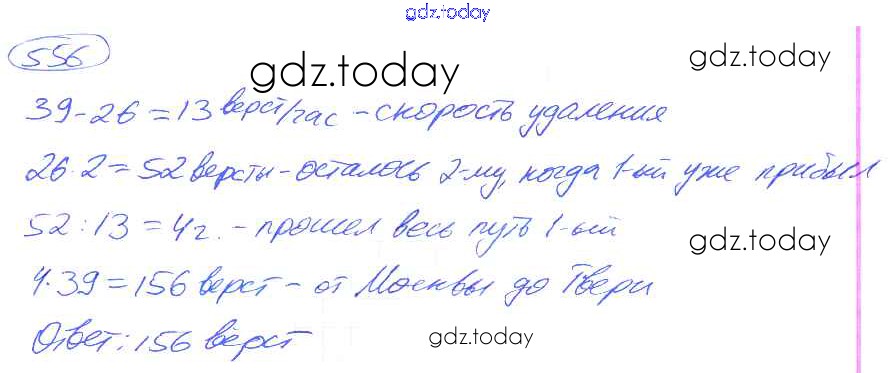 gdz.today
556
gdz.today
gdz.today
39-26=13 верст/час - скорость удаления
26·2=52 версты - осталось 2-му, когда 1-ый уже прибыл
52:13=4г. - прошел весь путь 1-ый
gdz.today
4·39=156 верст - от Москвы до Твери
Ответ: 156 вёрст
gdz.today